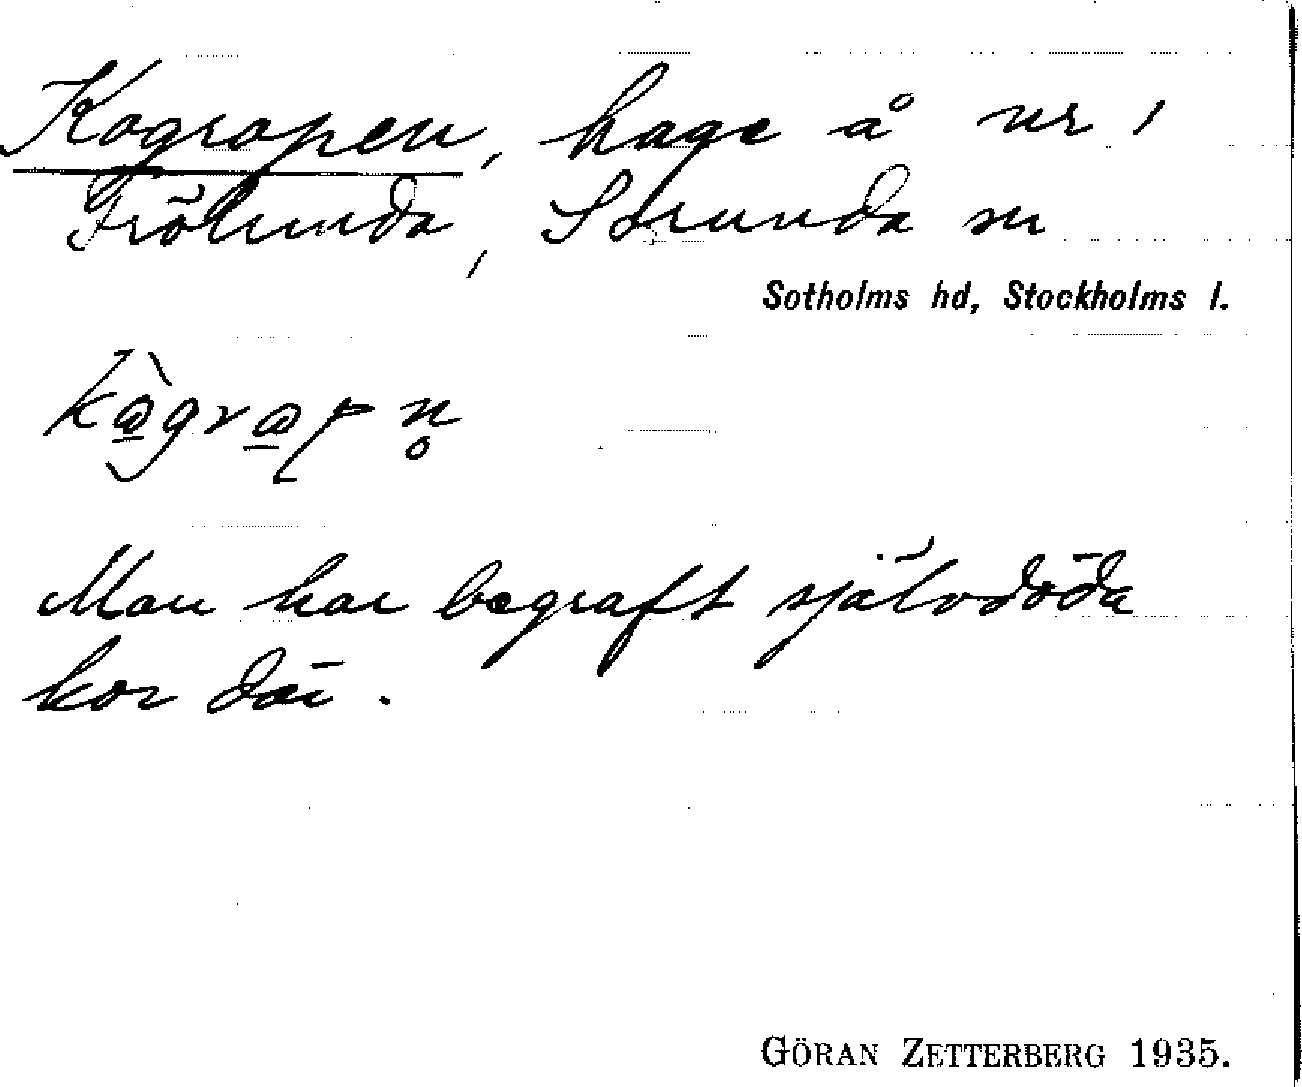 Kogropen, hage å nr 1
Frölunda, Sorunda sn
Sotholms hd, Stockholms l.
Man har begraft självdöda
kor där.
GÖRAN ZETTERBERG 1935.